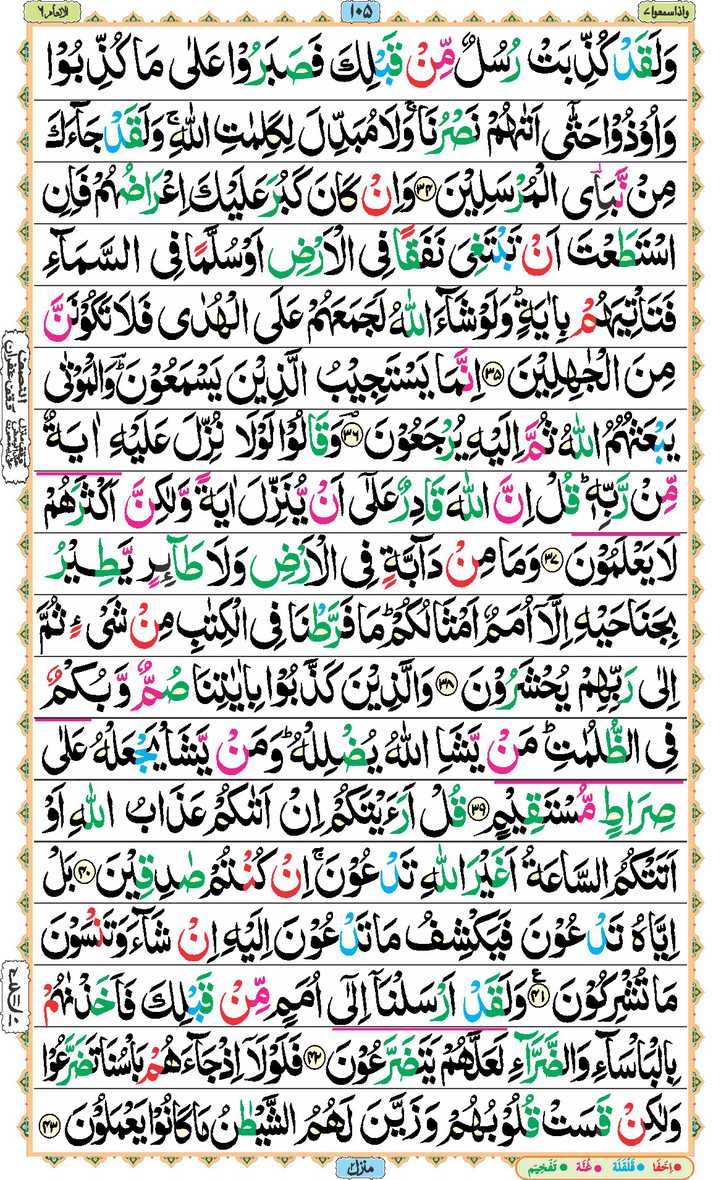 واذا سمعوا ۷
۱۰۵
الانعام ٦
وَلَقَدۡ كُذِّبَتۡ رُسُلٌ مِّنۡ قَبۡلِكَ فَصَبَرُوۡا عَلٰى مَا كُذِّبُوۡا
وَاُوۡذُوۡا حَتّٰٓى اَتٰٮهُمۡ نَصۡرُنَا‌ ۚ وَلَا مُبَدِّلَ لِكَلِمٰتِ اللّٰهِ‌ ۚ وَلَقَدۡ جَآءَكَ
مِنۡ نَّبَاِى الۡمُرۡسَلِيۡنَ ﴿۳۴﴾ وَاِنۡ كَانَ كَبُرَ عَلَيۡكَ اِعۡرَاضُهُمۡ فَاِنِ
اسۡتَطَعۡتَ اَنۡ تَبۡتَغِىَ نَفَقًا فِى الۡاَرۡضِ اَوۡ سُلَّمًا فِى السَّمَآءِ
فَتَاۡتِيَهُمۡ بِاٰيَةٍ‌ ؕ وَلَوۡ شَآءَ اللّٰهُ لَجَمَعَهُمۡ عَلَى الۡهُدٰى فَلَا تَكُوۡنَنَّ
مِنَ الۡجٰهِلِيۡنَ ﴿۳۵﴾ اِنَّمَا يَسۡتَجِيۡبُ الَّذِيۡنَ يَسۡمَعُوۡنَ‌ ؕ وَالۡمَوۡتٰى
يَبۡعَثُهُمُ اللّٰهُ ثُمَّ اِلَيۡهِ يُرۡجَعُوۡنَ ﴿۳۶﴾ وَقَالُوۡا لَوۡلَا نُزِّلَ عَلَيۡهِ اٰيَةٌ
مِّنۡ رَّبِّهٖ‌ ؕ قُلۡ اِنَّ اللّٰهَ قَادِرٌ عَلٰٓى اَنۡ يُّنَزِّلَ اٰيَةً وَّلٰـكِنَّ اَكۡثَرَهُمۡ
لَا يَعۡلَمُوۡنَ ﴿۳۷﴾ وَمَا مِنۡ دَآبَّةٍ فِى الۡاَرۡضِ وَلَا طٰٓئِرٍ يَّطِيۡرُ
بِجَنَاحَيۡهِ اِلَّاۤ اُمَمٌ اَمۡثَالُكُمۡ‌ ؕ مَا فَرَّطۡنَا فِى الۡـكِتٰبِ مِنۡ شَىۡءٍ‌ ثُمَّ
اِلٰى رَبِّهِمۡ يُحۡشَرُوۡنَ ﴿۳۸﴾ وَالَّذِيۡنَ كَذَّبُوۡا بِاٰيٰتِنَا صُمٌّ وَّبُكۡمٌ
فِى الظُّلُمٰتِ‌ ؕ مَنۡ يَّشَاِ اللّٰهُ يُضۡلِلۡهُ ؕ وَمَنۡ يَّشَاۡ يَجۡعَلۡهُ عَلٰى
صِرَاطٍ مُّسۡتَقِيۡمٍ ﴿۳۹﴾ قُلۡ اَرَءَيۡتَكُمۡ اِنۡ اَتٰٮكُمۡ عَذَابُ اللّٰهِ اَوۡ
اَتَتۡكُمُ السَّاعَةُ اَغَيۡرَ اللّٰهِ تَدۡعُوۡنَ‌ ۚ اِنۡ كُنۡتُمۡ صٰدِقِيۡنَ ﴿۴۰﴾ بَلۡ
اِيَّاهُ تَدۡعُوۡنَ فَيَكۡشِفُ مَا تَدۡعُوۡنَ اِلَيۡهِ اِنۡ شَآءَ وَتَنۡسَوۡنَ
مَا تُشۡرِكُوۡنَ ﴿۴۱﴾ ع وَلَقَدۡ اَرۡسَلۡنَاۤ اِلٰٓى اُمَمٍ مِّنۡ قَبۡلِكَ فَاَخَذۡنٰهُمۡ
بِالۡبَاۡسَآءِ وَالضَّرَّآءِ لَعَلَّهُمۡ يَتَضَرَّعُوۡنَ ﴿۴۲﴾ فَلَوۡلَاۤ اِذۡ جَآءَهُمۡ بَاۡسُنَا تَضَرَّعُوۡا
وَلٰـكِنۡ قَسَتۡ قُلُوۡبُهُمۡ وَزَيَّنَ لَهُمُ الشَّيۡطٰنُ مَا كَانُوۡا يَعۡمَلُوۡنَ ﴿۴۳﴾
منزل ۲
اِخۡفَا قَلۡقَلَة غُنَّة تَفۡخِيۡم